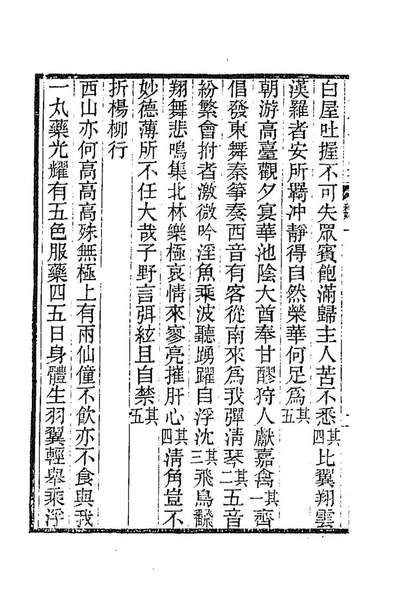 白屋吐握不可失眾賓飽滿歸主人苦不悉其四比翼翔雲
漢羅者安所羇沖靜得自然榮華何足為其五
朝游高臺觀夕宴華池陰大酋奉甘醪狩人獻嘉禽其一齊
倡發東舞秦箏奏西音有客從南來為我彈清琴其二五音
紛繁會拊者激微吟淫魚乘波聽踴躍自浮沈其三飛鳥翻
翔舞悲鳴集北林樂極哀情來寥亮摧肝心其四清角豈不
妙德薄所不任大哉子野言弭絃且自禁其五
折楊柳行
西山亦何高高高殊無極上有兩仙僮不飲亦不食與我
一丸藥光耀有五色服藥四五日身體生羽翼輕舉乘浮